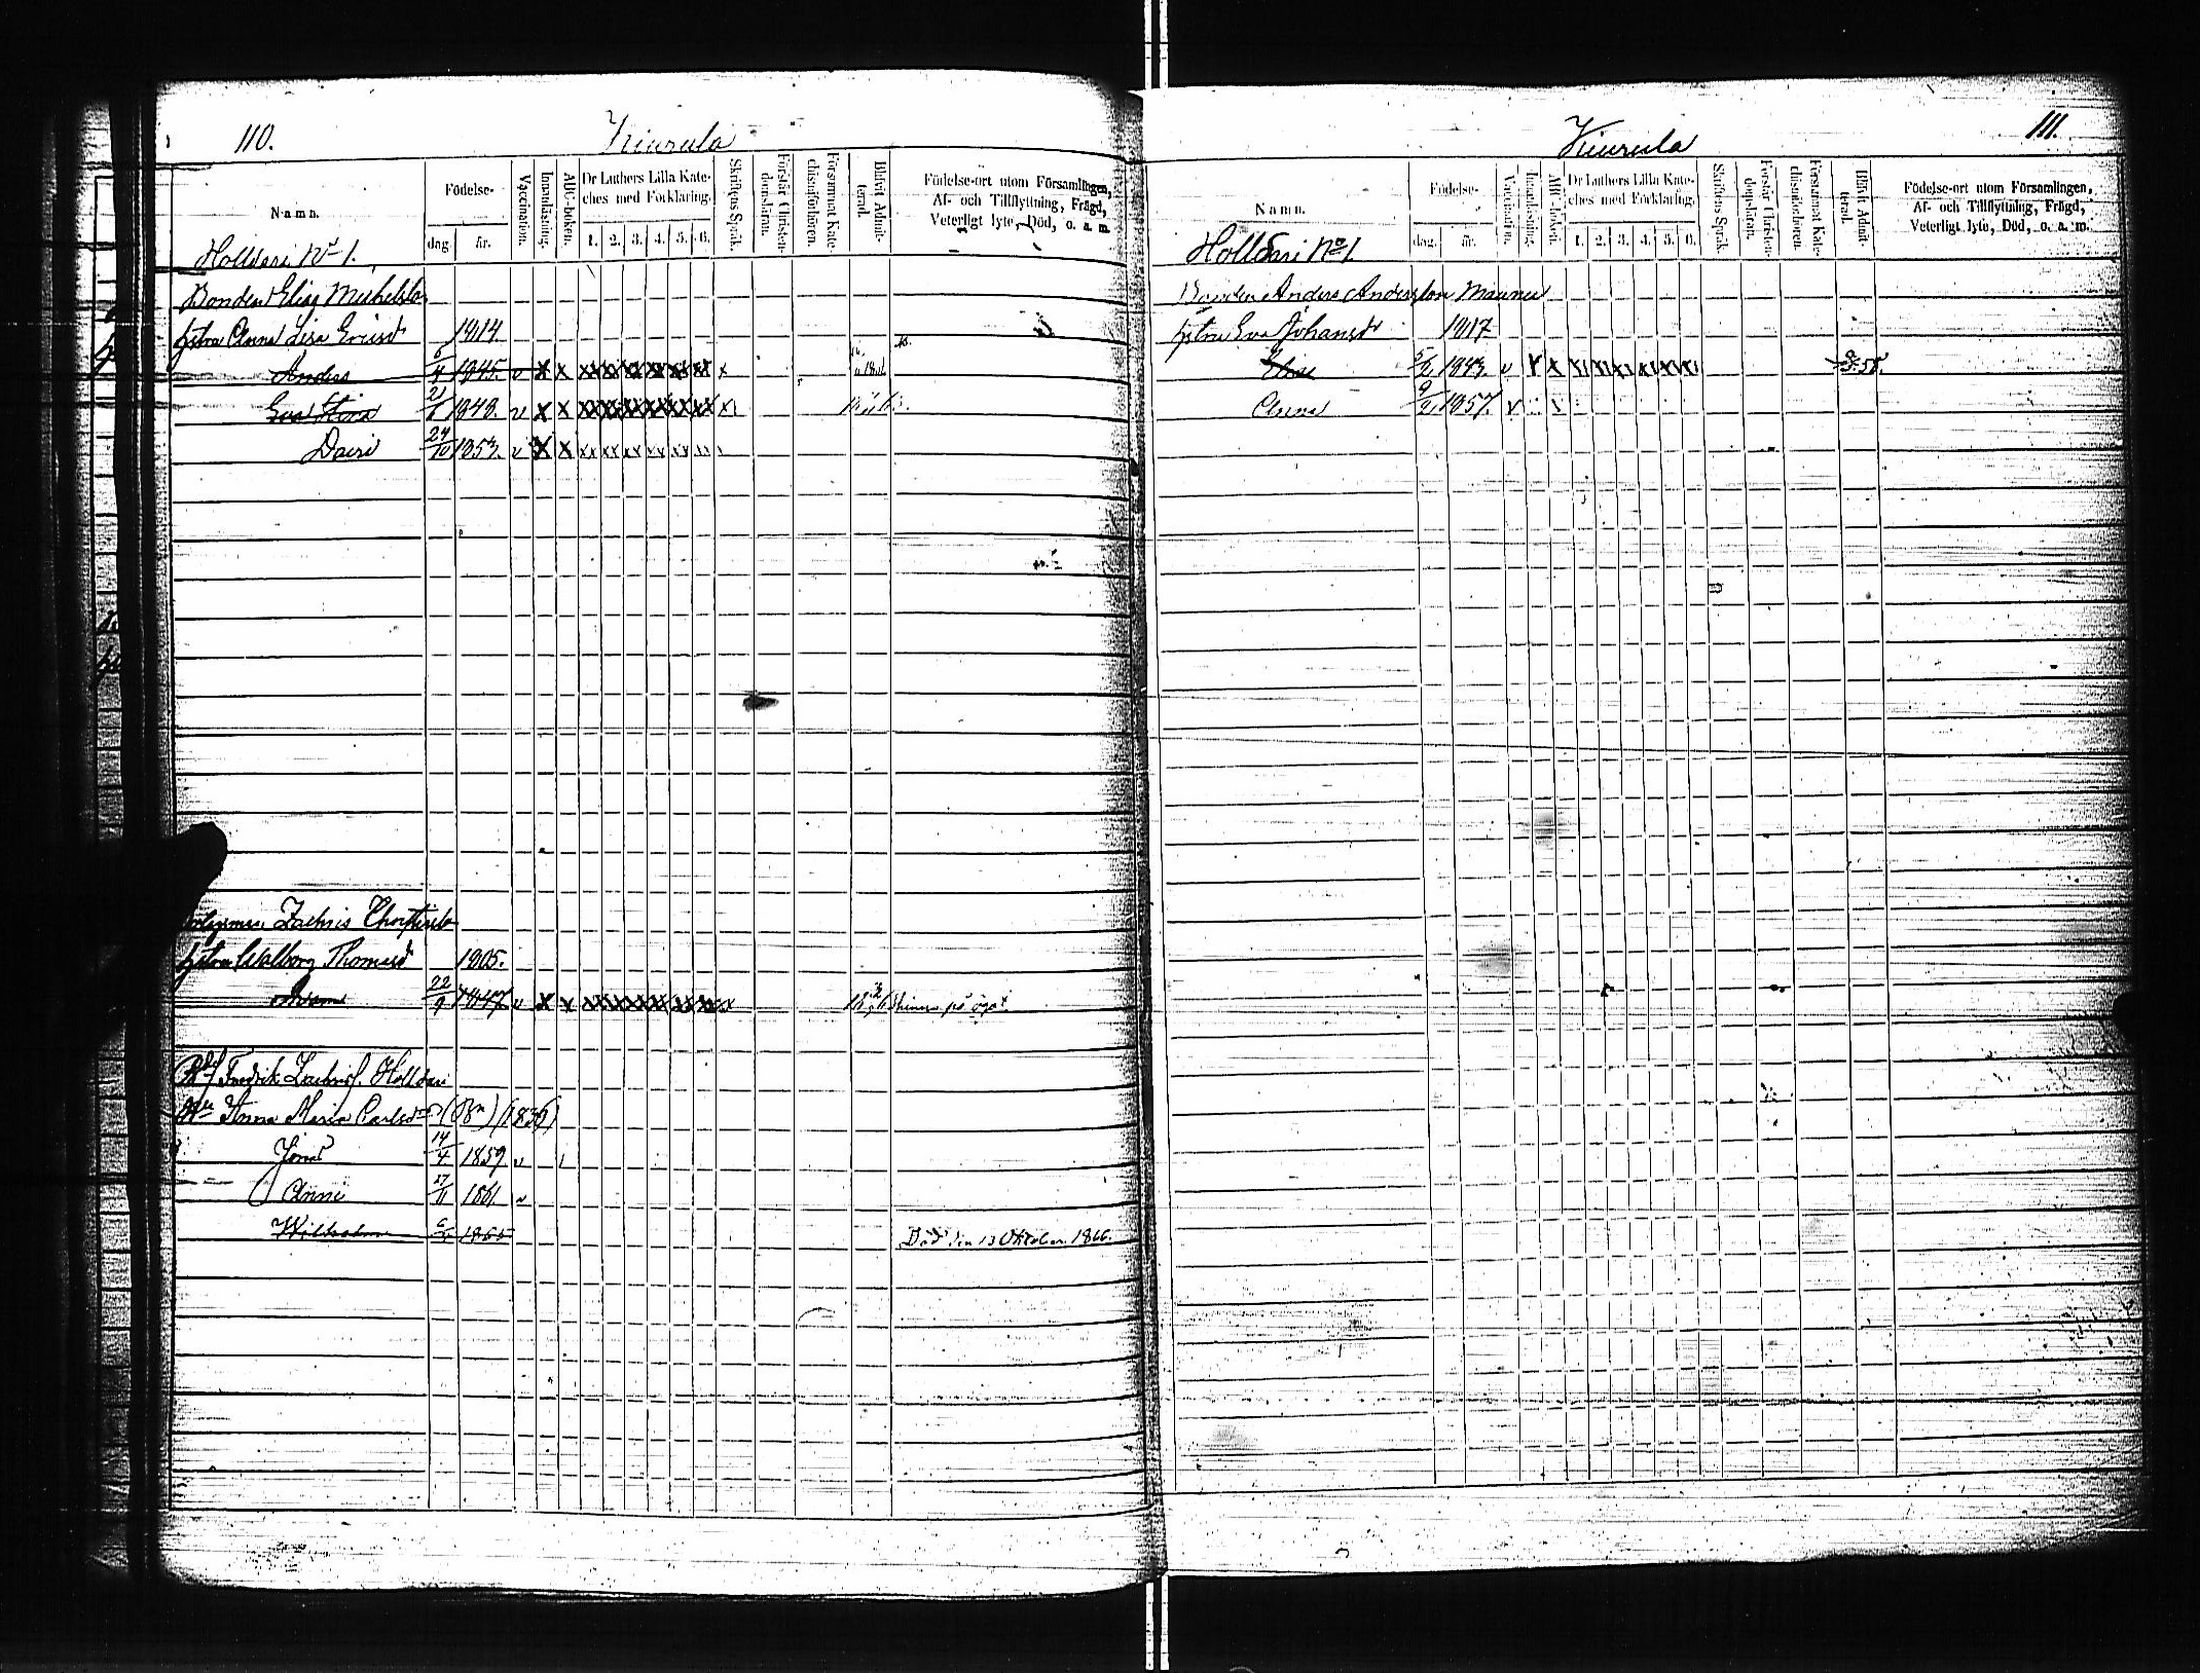 110.
Kiurula
Namn.
Födelse-
dag.
år.
Vaccination.
Innanläsning.
ABC-boken.
Dr Luthers Lilla Kate-
ches med Förklaring.
1. 2. 3. 4. 5. 6.
Skriftens Språk.
Förstår Christen-
domsläran.
Försummat Kate-
chismiförhören.
Blifvit Admit-
terad.
Födelse-ort utom Församlingen,
Af- och Tillflyttning, Frägd,
Veterligt lyte, Död, o. a. m.
Holldari No 1.
Bonden Elias Michelsson
hstru Anna Lisa Ericsd 1814.
Anders 6/4 1845. v x x xx xx xx xx xx xx x
Eva Stina 2/6 1849. v x x xx xx xx xx xx xx x
Davi 24/10 1853. v x x xx xx xx xx xx xx
Zachris
hstru Walborg Thomasd 1805.
Adam 22/9 1847. v x x xx xx xx xx xx xx x på ögat
Fredrik Zachrisf. Holldari
Hu Anna Maria Carlsd (Bn) (1836)
Jonas 14/4 1859 v
Anna 17/11 1861. v
Wilhelm 1865 Död den 13 Oktober 1866.
111.
Kiurula
Namn.
Födelse-
dag.
år.
Vaccination.
Innanläsning.
ABC-boken.
Dr Luthers Lilla Kate-
ches med Förklaring.
1. 2. 3. 4. 5. 6.
Skriftens Språk.
Förstår Christen-
domsläran.
Försummat Kate-
chismiförhören.
Blifvit Admit-
terad.
Födelse-ort utom Församlingen,
Af- och Tillflyttning, Frägd,
Veterligt lyte, Död, o. a. m.
Holldari No 1.
Bonden Anders Andersson Maunu
hstru Eva Johansd 1817
Elias 5/2 1843. v x x xx xx xx xx xx xx
Anna 9/2 1857. v